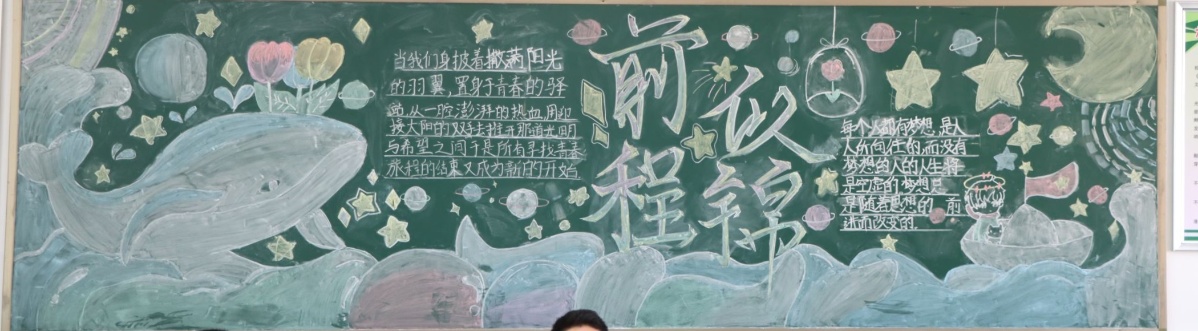 当我们身披着撒满阳光
的羽翼,置身于青春的驿
站,从一腔澎湃的热血,用迎
接太阳的双手去推开那道光明
与希望之间于是所有寻找青春
旅程的结束又成为新的开始
前程
似锦
每个人都有梦想,是人
人所向往的,而没有
梦想的人的人生将
是空虚的梦想总
是随着思想的 前
进而改变的